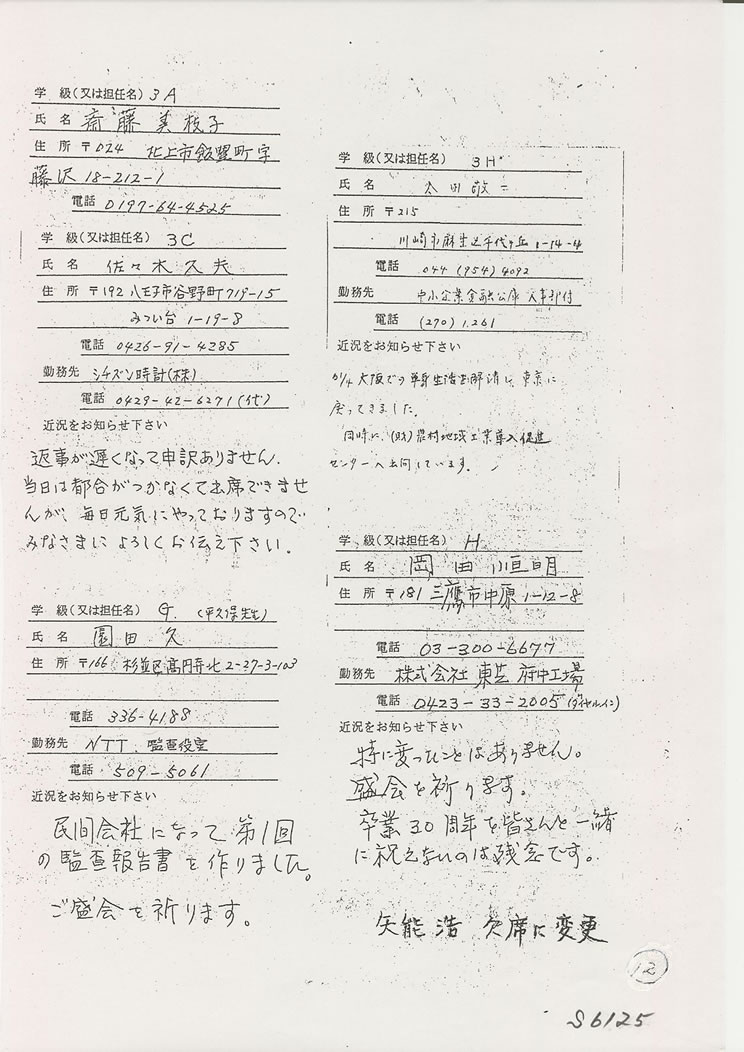 学 級(又は担任名) 3A
氏 名 斎藤美枝子
住 所 〒024 北上市飯豊町字
藤沢 18-212-1
電話 0197-64-4525
学 級(又は担任名) 3C
氏 名 佐々木久夫
住 所 〒192 八王子市谷野町719-15
みつい台 1-19-8
電話 0426-91-4285
勤務先 シチズン時計(株)
電話 0429-42-6271(代)
近況をお知らせ下さい
返事が遅くなって申訳ありません.
当日は都合がつかなくて出席できませ
んが、毎日元気にやっておりますので
みなさまに よろしくお伝え下さい.
学 級(又は担任名) G. (平久保先生)
氏 名 園田 久
住 所 〒166 杉並区高円寺北2-37-3-103
電話 336-4188
勤務先 NTT. 監査役室
電話 509-5061
近況をお知らせ下さい
民間会社になって第1回
の監査報告書を作りました。
ご盛会を祈ります。
学 級(又は担任名) 3H
氏 名 太田敬二
住 所 〒215
川崎市麻生区千代ヶ丘 1-14-4
電話 044 (954) 4092
勤務先 中小企業金融公庫 人事部付
電話 (270) 1261
近況をお知らせ下さい
大阪での単身生活を解消し、東京に
戻ってきました。
同時に、(財)農村地域工業導入促進
センターへ出向しています。
学 級(又は担任名) H
氏 名 岡田恒明
住 所 〒181 三鷹市中原1-12-8
電話 03-300-6677
勤務先 株式会社 東芝 府中工場
電話 0423-33-2005(ダイヤルイン)
近況をお知らせ下さい
特に変ったことはありません。
盛会を祈ります。
卒業30周年を皆さんと一緒
に祝えないのは残念です。
矢能 浩 欠席に変更
12
S6125